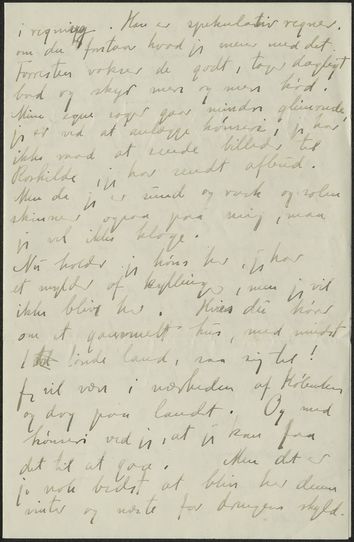 i regning. Han er spekulativ regner.
om du forstaar hvad jeg mener med det.
Forresten vokser de godt, tager dagligt
bad og skyr mer og mer kød.
Mine egne sager gaar mindre glimrende,
jeg er ved at anlægge hønseri, jeg har
ikke raad at sende billeder til
Roskilde, jeg har sendt afbud.
Men da jeg er sund og rask og solen
skinner ogsaa paa mig, maa
jeg vel ikke klage.
Nu holder jeg høns her, jeg har
et mylder af kyllinger, men jeg vil
ikke blive her. Hvis du hører
om et gammelt hus, med mindst
1 tønde land, saa sig til!
Jeg vil være i nærheden af København
og dog paa landet. Og med
hønseri ved jeg, at jeg kan faa
det til at gaa. Men det er
jo nok bedst at blive her denne
vinter og næste for drengens skyld.